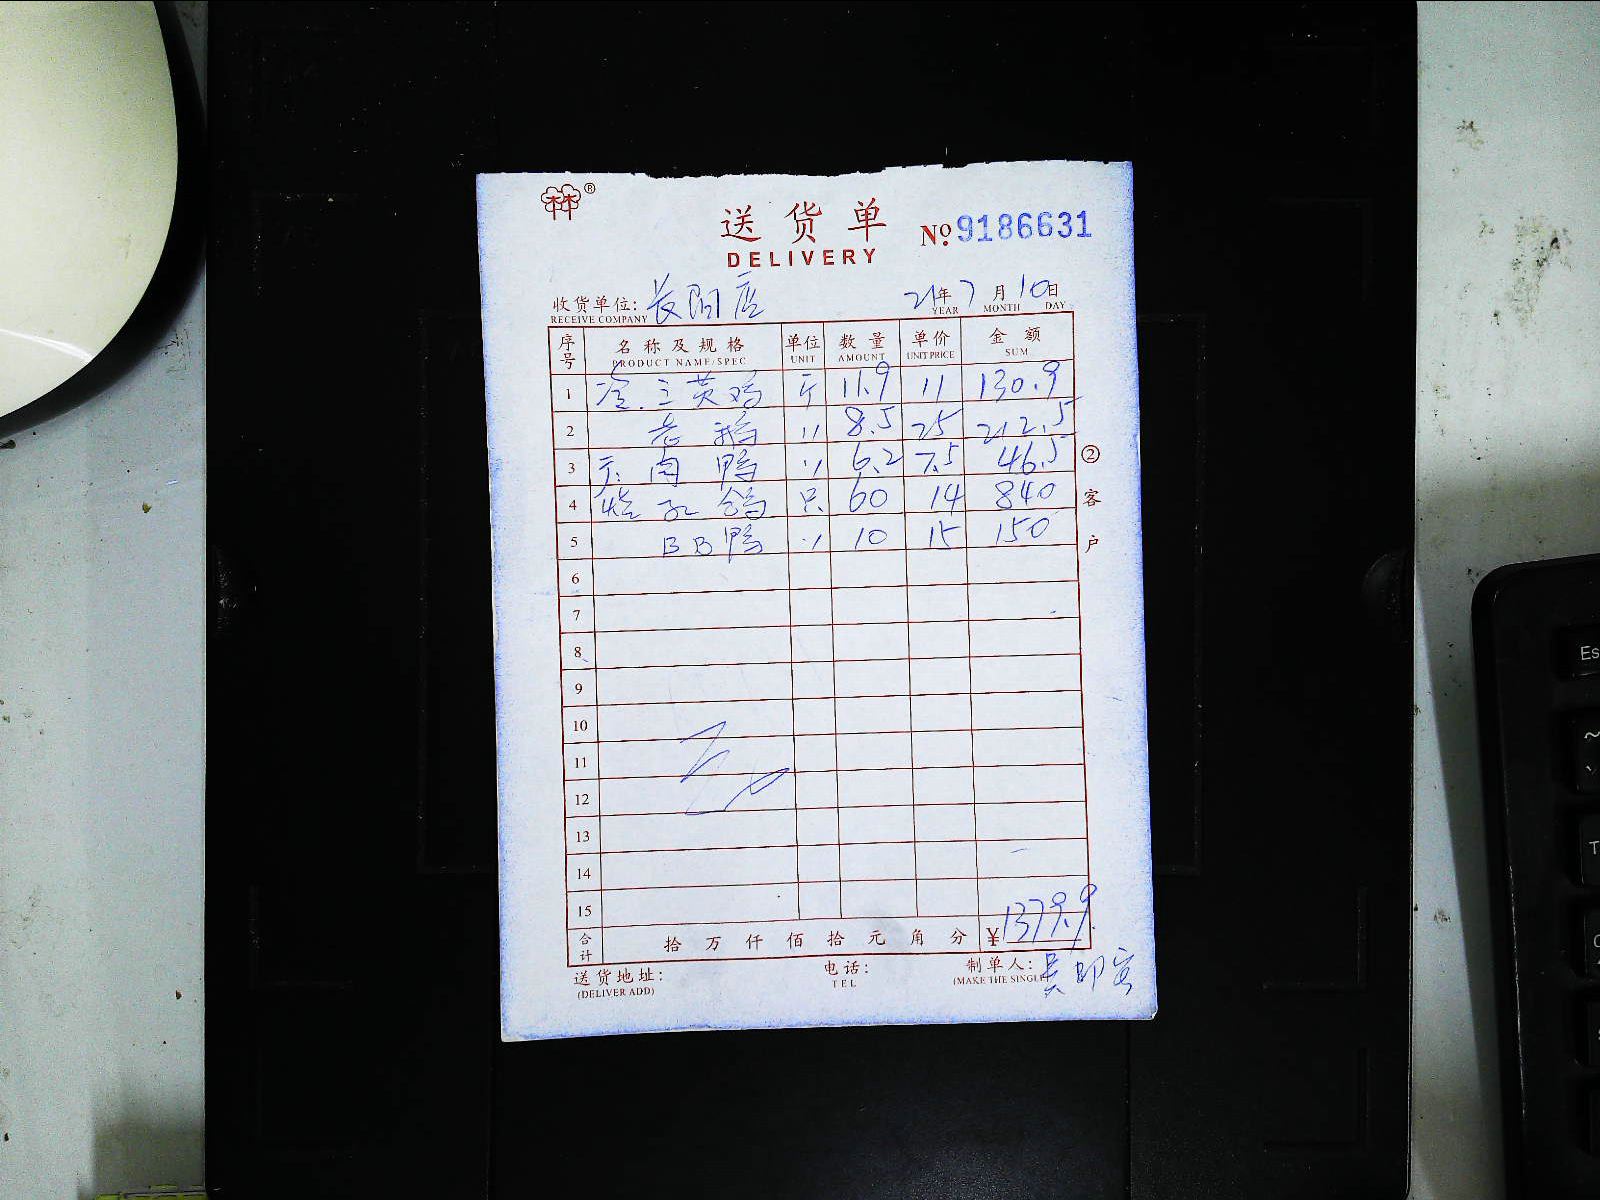 林®
送货单
№ 9186631
DELIVERY
收货单位: 长阳店 21年 7月 10日
RECEIVE COMPANY YEAR MONTH DAY
序号 名称及规格 单位 数量 单价 金额
PRODUCT NAME/SPEC UNIT AMOUNT UNIT PRICE SUM
1 冻.三黄鸡 斤 11.9 11 130.9
2 老鹅 〃 8.5 25 212.5
3 肉鸭 〃 6.2 7.5 46.5
4 乳鸽 只 60 14 840
5 BB鸭 〃 10 15 150
6
7
8
9
10
11
12
13
14
15
合计 拾万仟佰拾元角分 ¥1379.9
送货地址: 电话: 制单人: 吴
(DELIVER ADD) TEL (MAKE THE SINGLE)
②客户
Es
~
T